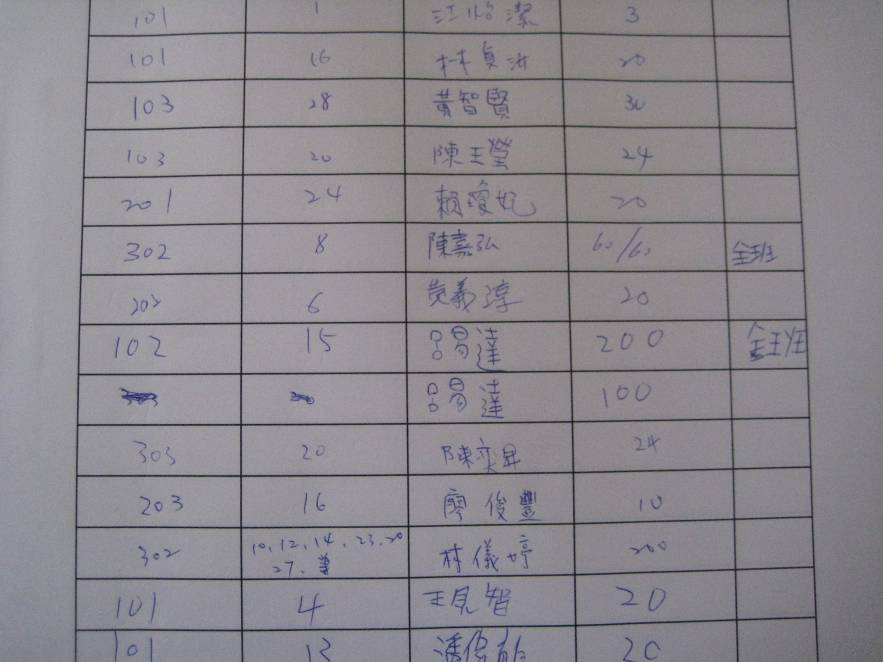 101 1 江怡潔 3
101 16 林貞汝 20
103 28 黃智賢 30
103 20 陳玉瑩 24
201 24 賴瓊妃 20
302 8 陳嘉弘 60/60 全班
203 6 黃義淳 20
102 15 呂昌達 200 全班
呂昌達 100
303 20 陳奕昇 24
203 16 廖俊豐 10
302 10、12、14、23、20 林儀婷 200
27、
101 4 王見智 20
101 13 20